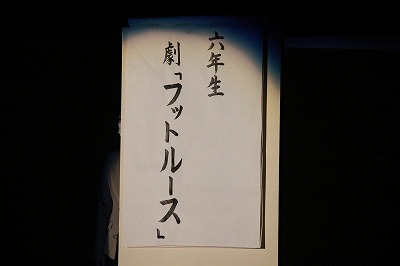 六年生
劇「フットルース」